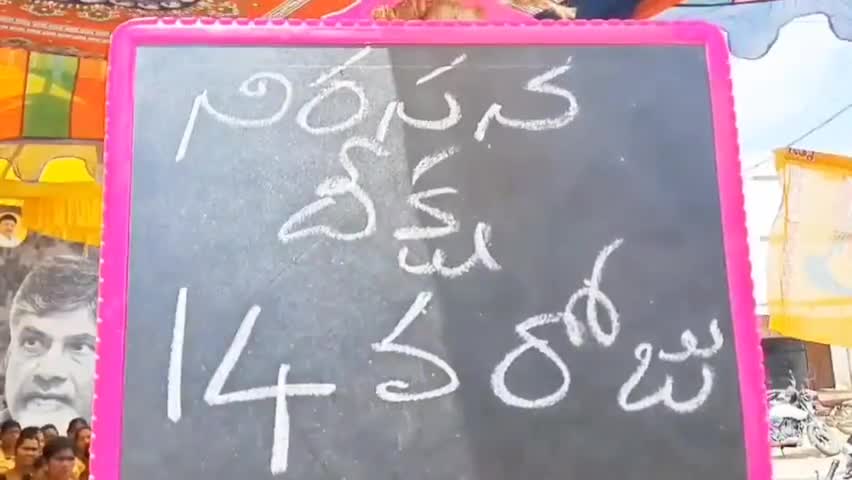 నిరసన
దీక్ష
14 వ రోజు